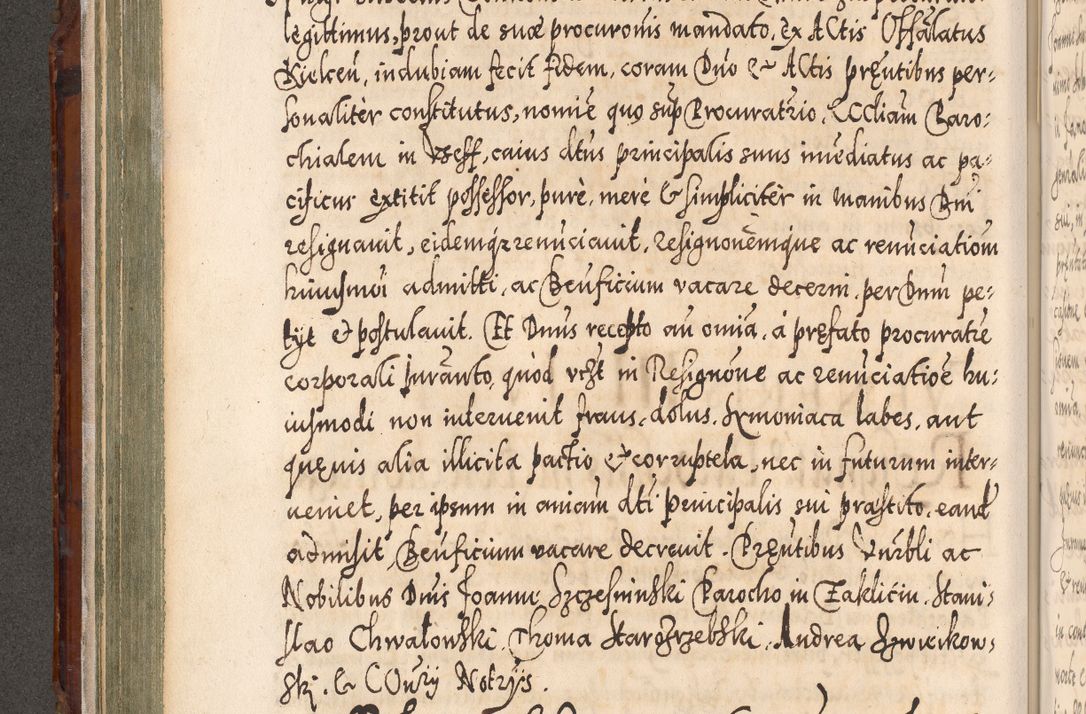 legittimus, prout de suæ procuronis mandato, ex Actis Offālatus
Kielceñ, indubiam fecit fidem, coram Dño & Actis pręntibus per-
sonalitèr constitutus, nomiē quo sup̄ Procuratrio, Eccliam Paro-
chialem in Vseff, cuius dtūs principalis suus imēdiatus ac pa-
cificus extitit possessor, purè, merè & simplicitèr in manibus Dni
resignauit, eidemq̃ renuciauit, Resignonemque ac renūciationē
huiusmoi admitti, ac Benficium vacare decerni, per Dnm pe-
tyt & postulauit. Et Dnus recepto añ omīa, á pręfato procuratre
corporali juranto, quòd vtzt in Resignōne ac renuciatioē hu-
iusmodi non interuenit fraus, dolus, Symoniaca labes, aut
quęuis alia illicita pactio & corruptela, nec in futurum inter-
ueniet, per ipsum in animam dti principalis sui prastito, eand
admisit, Benficium vacare decreuit. Pręntibus Vnrbli ac
Nobilibus Dnis Joanne Szczesninski Parocho in Zaklicin, Stani-
slao Chwałowski, Thoma Starozrzebski, Andrea Szwieykow-
ski, & COnsrij Notrys.